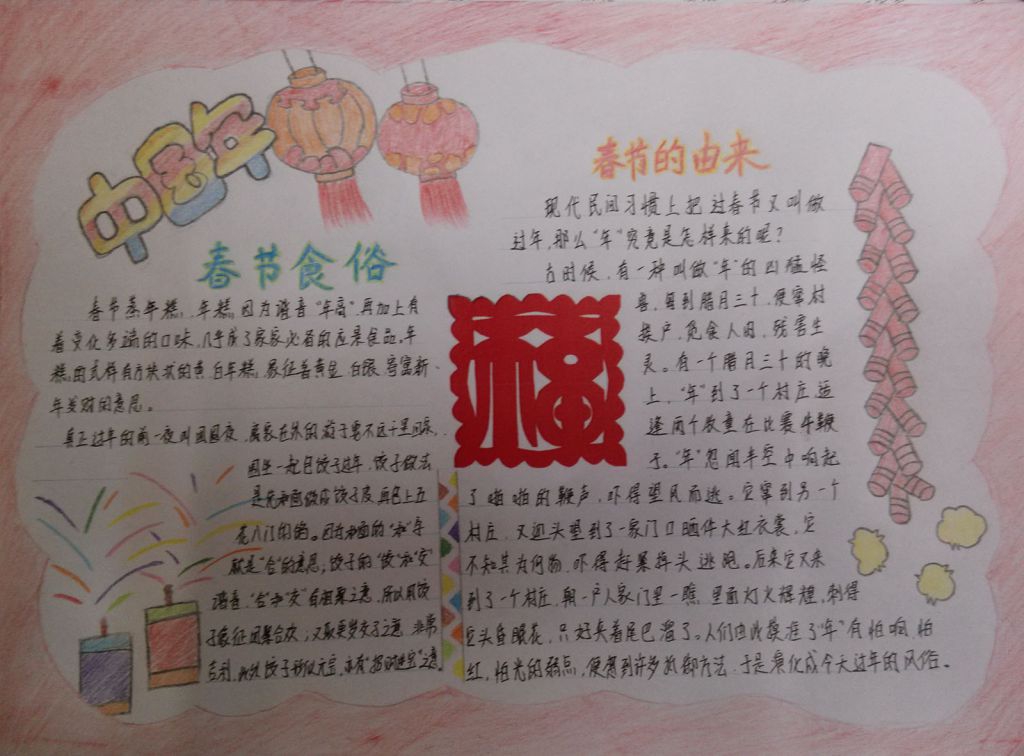 中国年
春节食俗
春节蒸年糕，年糕因为谐音“年高”，再加上有
着变化多端的口味，几乎成了家家必备的应景食品。年
糕的式样有方块状的黄、白年糕，象征着黄金、白银，寄寓新
年发财的意思。
真正过年的前一夜叫团圆夜，离家在外的游子要不远千里回来，
团坐一起包饺子过年，饺子做法
是先和面做成饺子皮，再包上五
花八门的馅。因为和面的“和”字
就是“合”的意思；饺子的“饺”和“交”
谐音，“合”和“交”有相聚之意，所以用饺
子象征团聚合欢；又取更岁交子之意，非常
吉利，此外饺子形似元宝，亦有“招财进宝”之意。
福
春节的由来
现代民间习惯上把过春节又叫做
过年，那么“年”究竟是怎样来的呢？
古时候，有一种叫做“年”的凶猛怪
兽，每到腊月三十，便窜村
挨户，觅食人肉，残害生
灵。有一个腊月三十的晚
上，“年”到了一个村庄，适
逢两个牧童在比赛牛鞭
子。“年”忽闻半空中响起
了啪啪的鞭声，吓得望风而逃。它窜到另一个
村庄，又迎头望到了一家门口晒件大红衣裳，它
不知其为何物，吓得赶紧掉头逃跑。后来它又来
到了一个村庄，朝一户人家门里一瞧，里面灯火辉煌，刺得
它头昏眼花，只好夹着尾巴溜了。人们由此摸准了“年”有怕响，怕
红，怕光的弱点，便想到许多抵御方法，于是演化成今天过年的风俗。